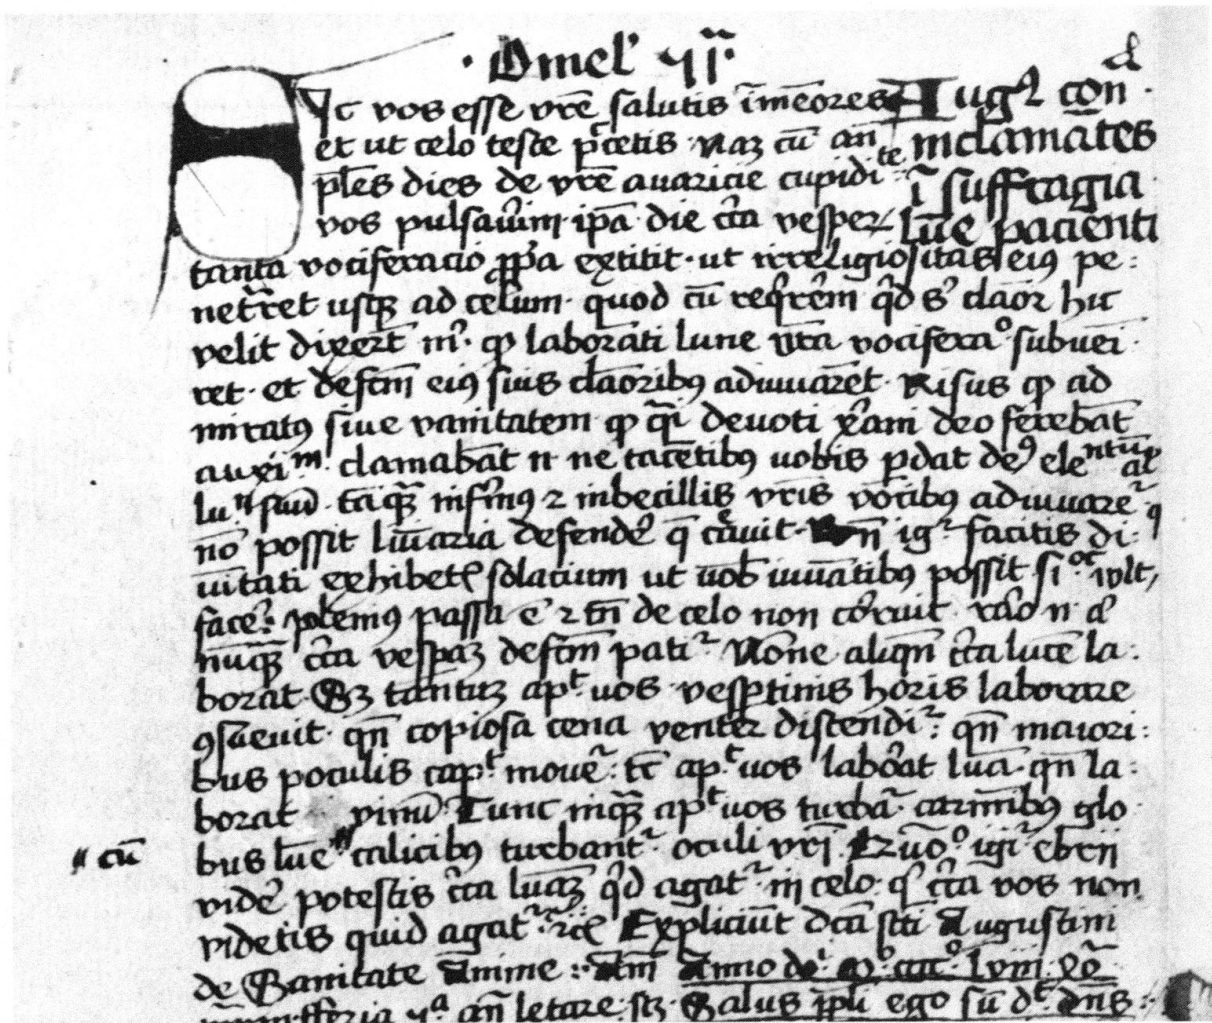 · Omel' ii ·
Sic vos esse vrē salutis īmēores
Augꝰ con̄
et ut celo teste p̄cetis · Naʒ cū an̄
inclamātes
pl̄es dies de vrē avaricie cupidi te
ī suffragia
vos pulsav̄im · ip̄a die cīta vesper
lūe pacienti
tanta vociferacio pp̄a extitit · ut irreligiositas eiꝰ pe :
net̄ret usqʒ ad celum · quod cū reqͥrēm qͥd sͥ clāor hic
velit dixert̄ mͥ · qͥ laborāti lune vr̄a vociferaͦ subueī
ret · et defcm̄ eiꝰ suis clāoribꝰ adiuuaret · Risus qͥ ad
miratꝰ sūe vanitatem qͥ q̄i devoti xp̄ani deo ferebāt
auxiᵐ · clamabāt n̄ ne tacētibꝰ uobis p̄dat deꝰ eleᵐᵗᵘ
luᵉ suū tāqʒ infirmꝰ ⁊ inbecillis vr̄is vocibꝰ adiuuareᷣ
nō possit lūiaria defendeᷣ q̄ cͣuit · n̄ igᷣ facitis di :
viītati exhibetꝭ solacium ut uob̄ iuuātibꝰ possit siͨ uult,
faceᷣ · passa ē ⁊ tn̄ de celo non cōruit · rāo n̄
nūqʒ cͥca vesp̄aʒ defcm̄ patiᷣ · Nōne aliqn̄ cͥca lucē la :
borat · Sʒ tantuʒ apᵗ uos vesp̄tinis horis laborare
ꝯsueuit · qn̄ copiosa cena venter discendiᷣ : qn̄ maiori :
bus poculis capᵗ moveᷣ : tc̄ apᵗ uos laborat lūa · qn̄ la :
borat vinū · Tunc inqʒ apᵗ uos turbaᷣ carmībꝰ glo
// cū
bus lūe calicibꝰ turbantᷣ oculi vr̄i · igiᷣ ebrii
videᷣ potestis cͥca lunaʒ qͥd agatᷣ in celo · qͥ cͥca vos non
videtis quid agatᷣ ⁊cꝭ Expliciūt dcā scti Augustini
de Sanitate Anime : · Am̄ Anno doͥ mͦ cccͦ lviii
fferia an̄ letare · sʒ Salus ppl̄i ego sū dͭ dn̄s :